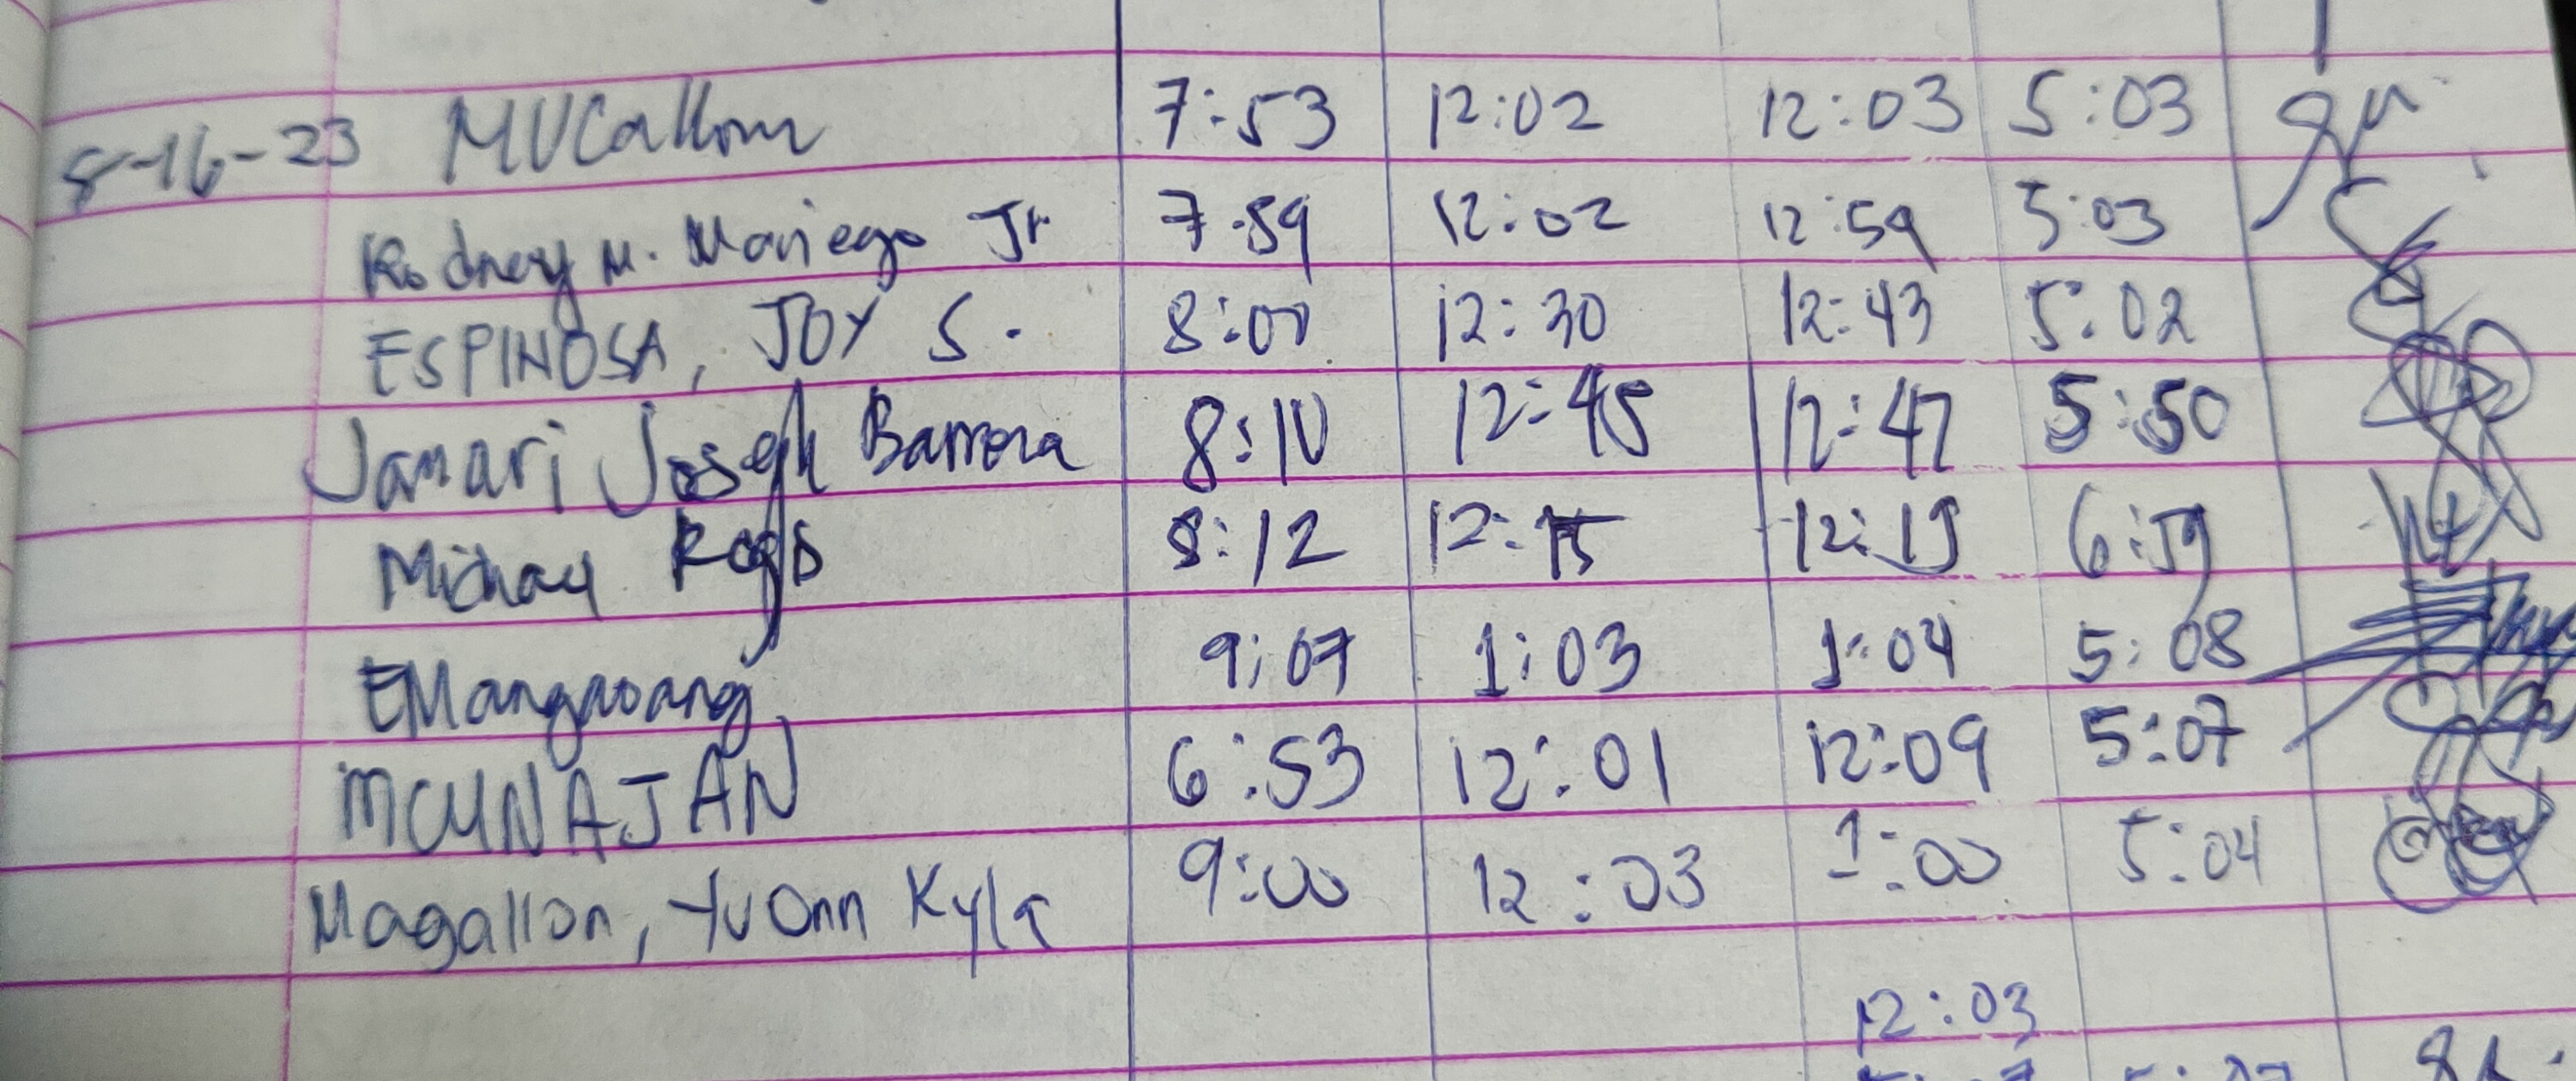 8-16-23 MVCallom 7:53 12:02 12:03 5:03
Rodney M. Mariego Jr 7:59 12:02 12:59 5:03
ESPINOSA, JOY S. 8:00 12:30 12:43 5:02
Jamari Joseph Barrera 8:10 12:45 12:47 5:50
8:12 12:15 12:19 6:59
EMangnoang 9:07 1:03 1:04 5:08
MCUNAJAN 6:53 12:01 12:09 5:07
Magallon, Yvonn Kyla 9:00 12:03 1:00 5:04
12:03